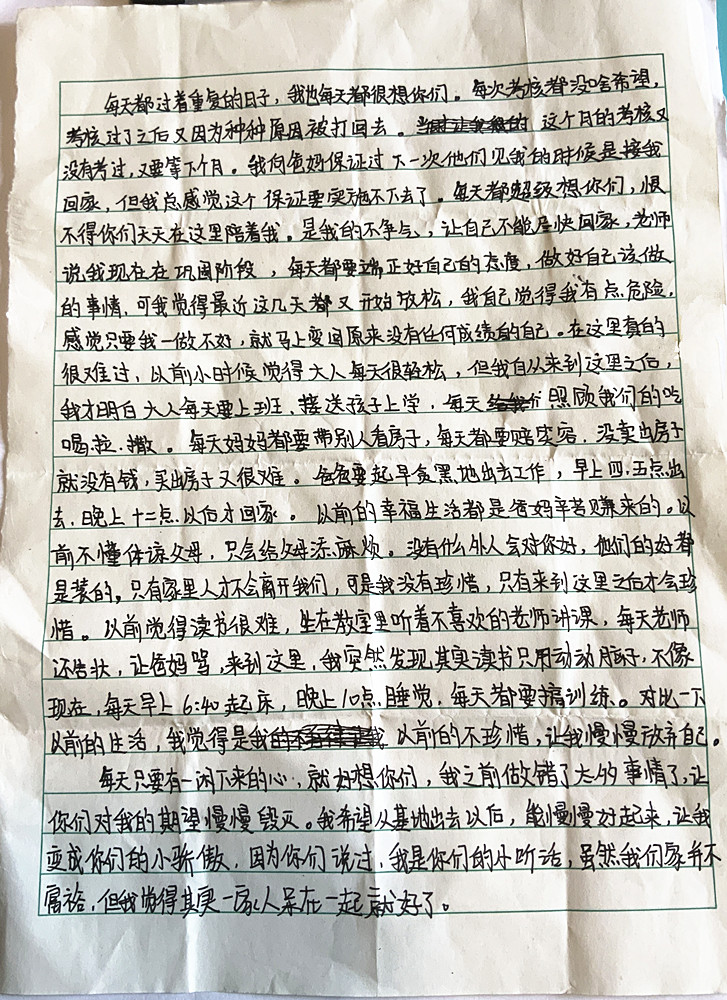 每天都过着重复的日子，我也每天都很想你们。每次考核都没啥希望，
考核过了之后又因为种种原因被打回去。这个月的考核又
没有考过，又要等下个月。我向爸妈保证过下一次他们见我的时候是接我
回家，但我总感觉这个保证要实施不下去了。每天都超级想你们，恨
不得你们天天在这里陪着我。是我的不争气，让自己不能尽快回家，老师
说我现在在巩固阶段，每天都要端正好自己的态度，做好自己该做
的事情，可我觉得最近这几天都又开始放松，我自己觉得我有点危险，
感觉只要我一做不好，就马上变回原来没有任何成绩的自己。在这里真的
很难过，以前小时候觉得大人每天很轻松，但我自从来到这里之后，
我才明白大人每天要上班、接送孩子上学，每天照顾我们的吃
喝.拉.撒。每天妈妈都要带别人看房子，每天都要赔笑容，没卖出房子
就没有钱，买出房子又很难。爸爸要起早贪黑地出去工作，早上四.五点出
去，晚上十二点以后才回家。以前的幸福生活都是爸妈辛苦赚来的。以
前不懂体谅父母，只会给父母添麻烦。没有什么外人会对你好，他们的好都
是装的。只有家里人才不会离开我们，可是我没有珍惜，只有来到这里之后才会珍
惜。以前觉得读书很难，坐在教室里听着不喜欢的老师讲课，每天老师
还告状，让爸妈骂，来到这里，我突然发现其实读书只用动动脑子，不像
现在，每天早上6:40起床，晚上10点睡觉，每天都要搞训练。对比一下
以前的生活，我觉得是我以前的不珍惜，让我慢慢放弃自己。
每天只要有一闲下来的心，就好想你们，我之前做错了太多事情了，让
你们对我的期望慢慢毁灭。我希望从基地出去以后，能慢慢好起来，让我
变成你们的小骄傲，因为你们说过，我是你们的小听话，虽然我们家并不
富裕，但我觉得其实一家人呆在一起就好了。